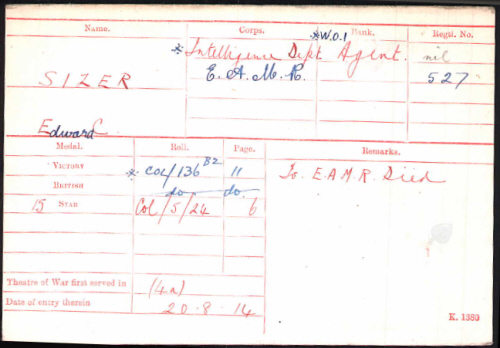 Name. Corps. Rank. Regtl. No.
*W.O.1
* Intelligence Dept Agent. nil
SIZER E.A.M.R. 527
Edward
Medal. Roll. Page. Remarks.
VICTORY * COL/136 B2 11 To E.A.M.R. Died
BRITISH do do.
15 STAR Col/5/24 6
Theatre of War first served in (4a)
Date of entry therein 20-8-14
K. 1380